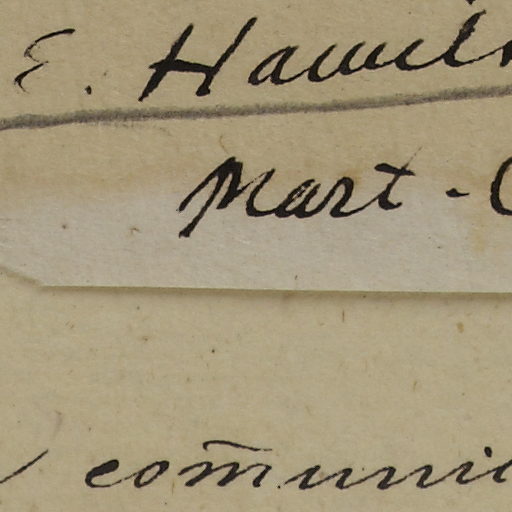 E. Hamil
Mart - C
com̄uni